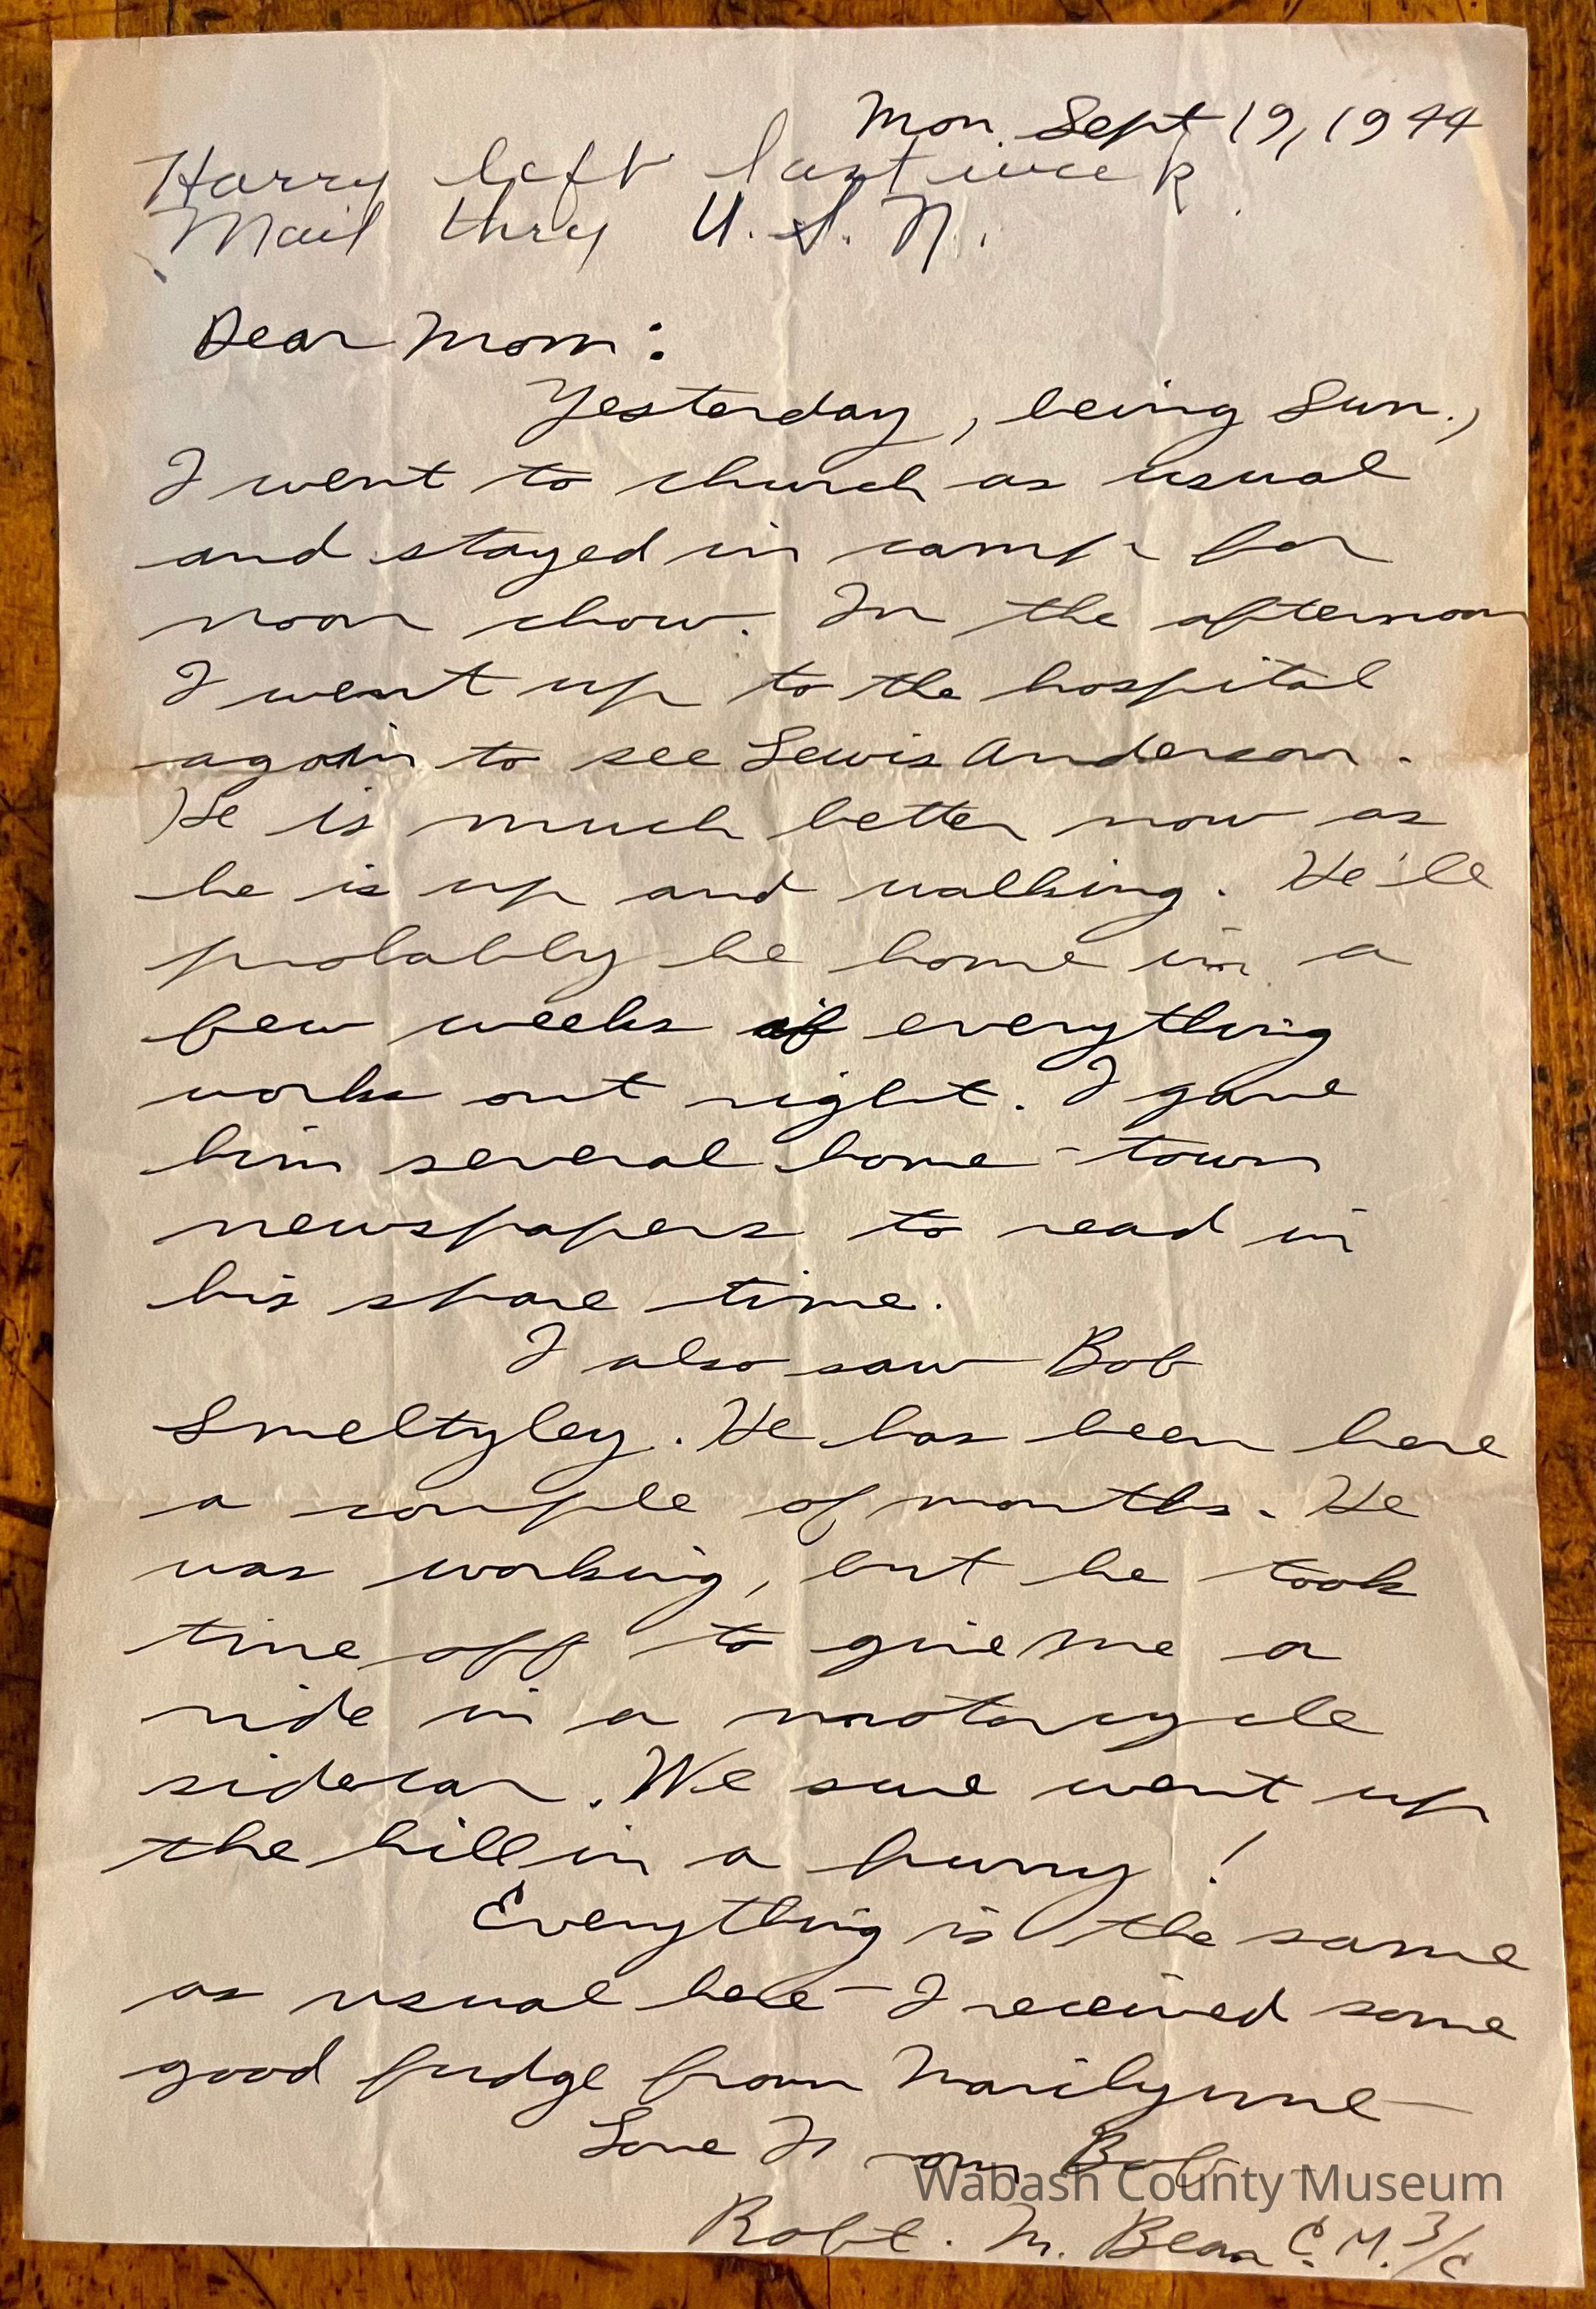 Mon. Sept 19, 1944
Harry left last week.
Mail thry U. S. N.
Dear Mom:
Yesterday, being Sun.,
I went to church as usual
and stayed in camp for
noon chow. In the afternoon
I went up to the hospital
again to see Lewis Anderson.
He is much better now as
he is up and walking. He'll
probably be home in a
few weeks if everything
works out right. I gave
him several home-town
newspapers to read in
his spare time.
I also saw Bob
Smeltzley. He has been here
a couple of months. He
was working, but he took
time off to give me a
ride in a motorcycle
sidecar. We sure went up
the hill in a hurry!
Everything is the same
as usual here - I received some
good fudge from Marilynne -
Love From Bob
Wabash County Museum
Robt. M. Bean C.M. 3/c